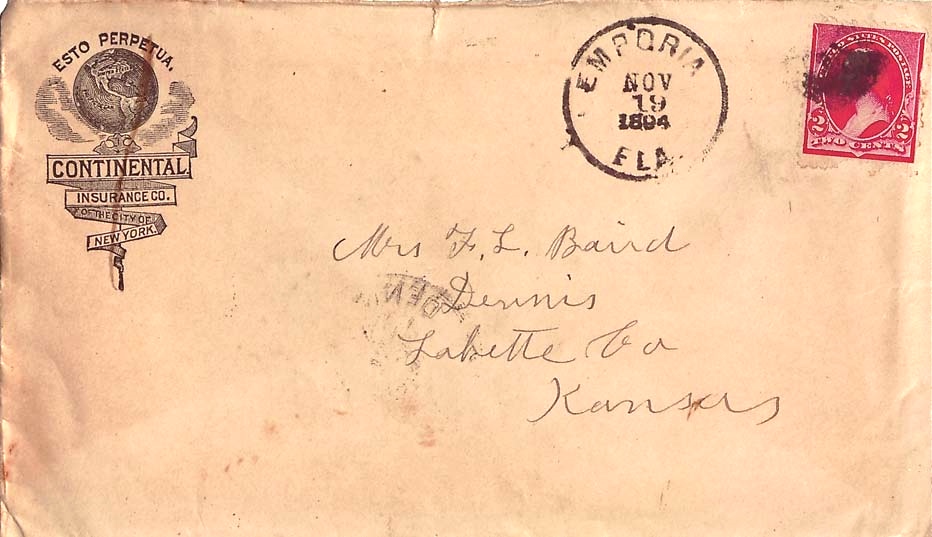 ESTO PERPETUA.
CONTINENTAL
INSURANCE CO.
OF THE CITY OF
NEW YORK.
EMPORIA
NOV
19
1894
FLA
UNITED STATES POSTAGE
2 2
TWO CENTS
Mrs F. L. Baird
Dennis
Labette Co
Kansas